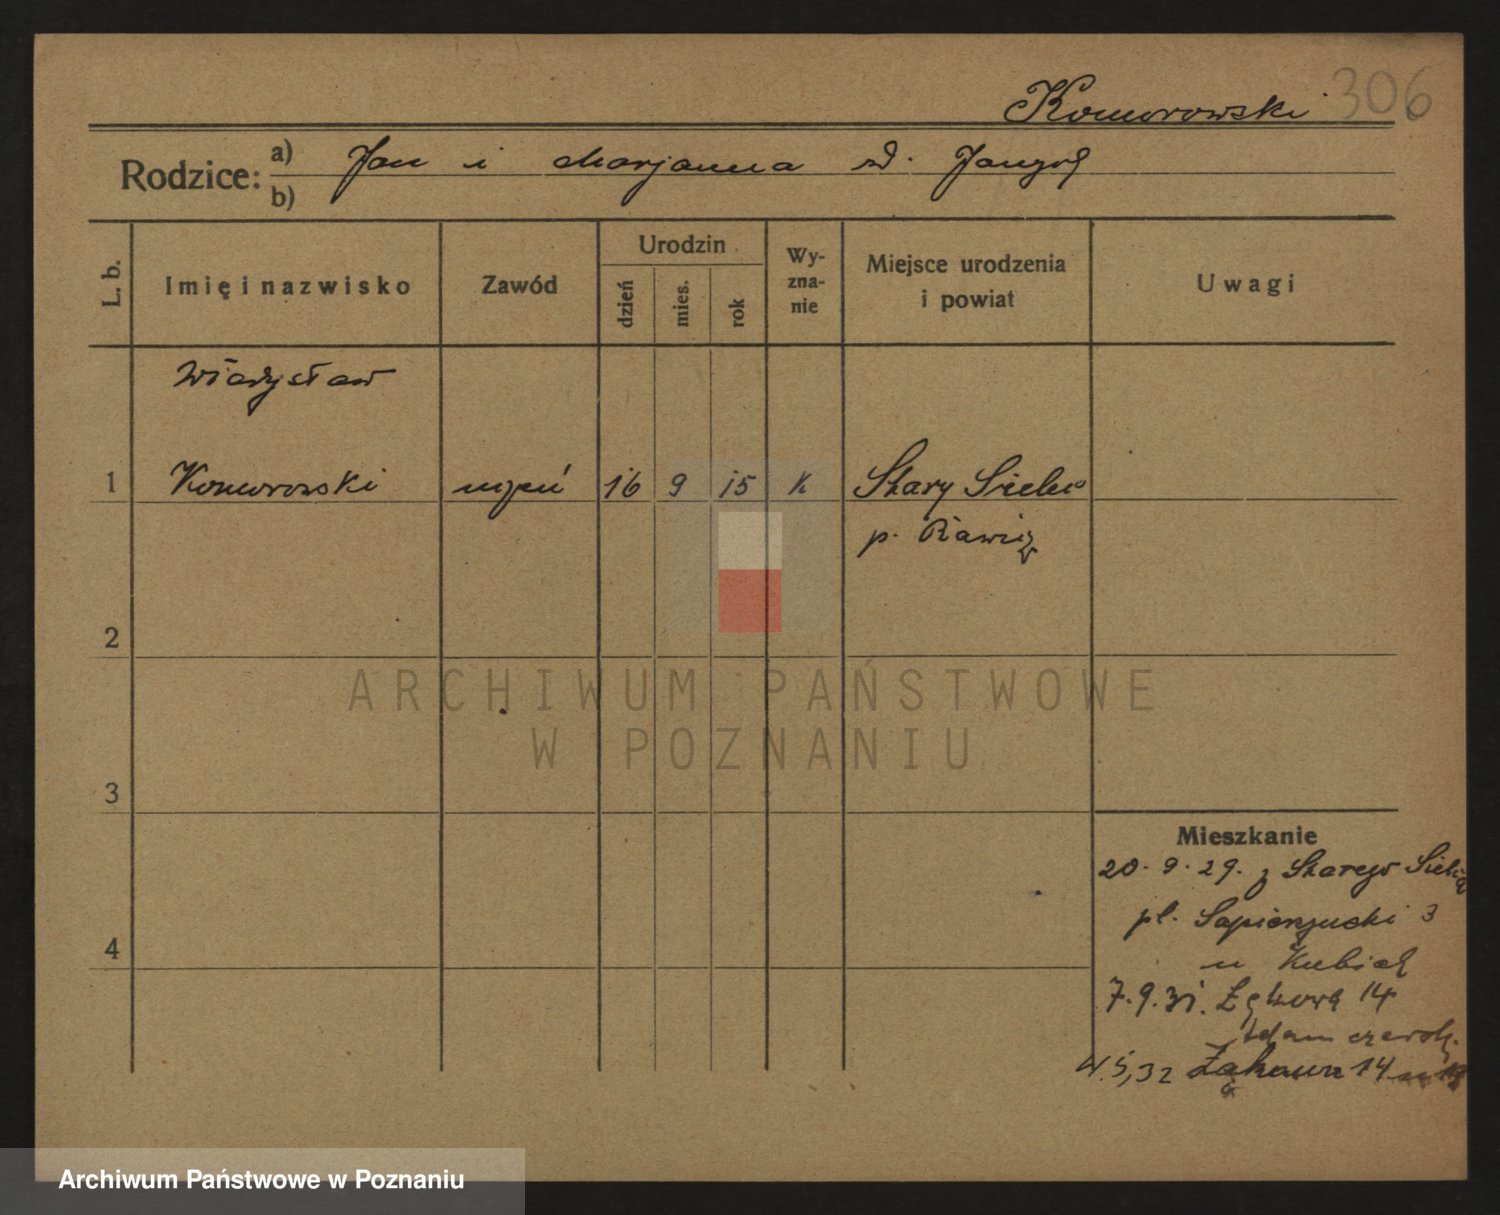 Komorowski 306
Rodzice: a) Jan i Marjanna zd. Jangoł
b)
L. b.
Imię i nazwisko
Zawód
Urodzin
dzień
mies.
rok
Wy-
zna-
nie
Miejsce urodzenia
i powiat
Uwagi
Władysław
1 Komorowski uczeń 16 9 15 k Stary Sielec
p. Rawicz
2
ARCHIWUM PAŃSTWOWE
W POZNANIU
3
Mieszkanie
20.9.29. z Starego Sielca
pl. Sapieżyński 3
4
u Kubiak
7.9.31. Łąkowa 14
Adam
4.5,32 Łąkowa 14
Archiwum Państwowe w Poznaniu